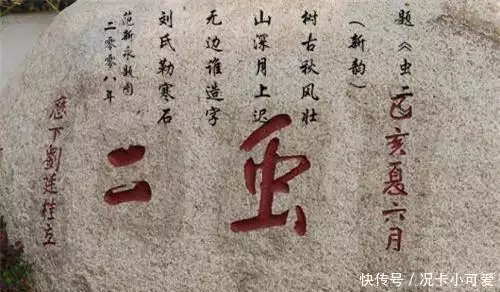 己亥夏六月
虫二
歷下劉廷桂立
题《虫二》
（新韵）
树古秋风壮
山深月上迟
无边谁造字
刘氏勒寒石
范新永题图
二〇〇八年
快传号／况卡小可爱